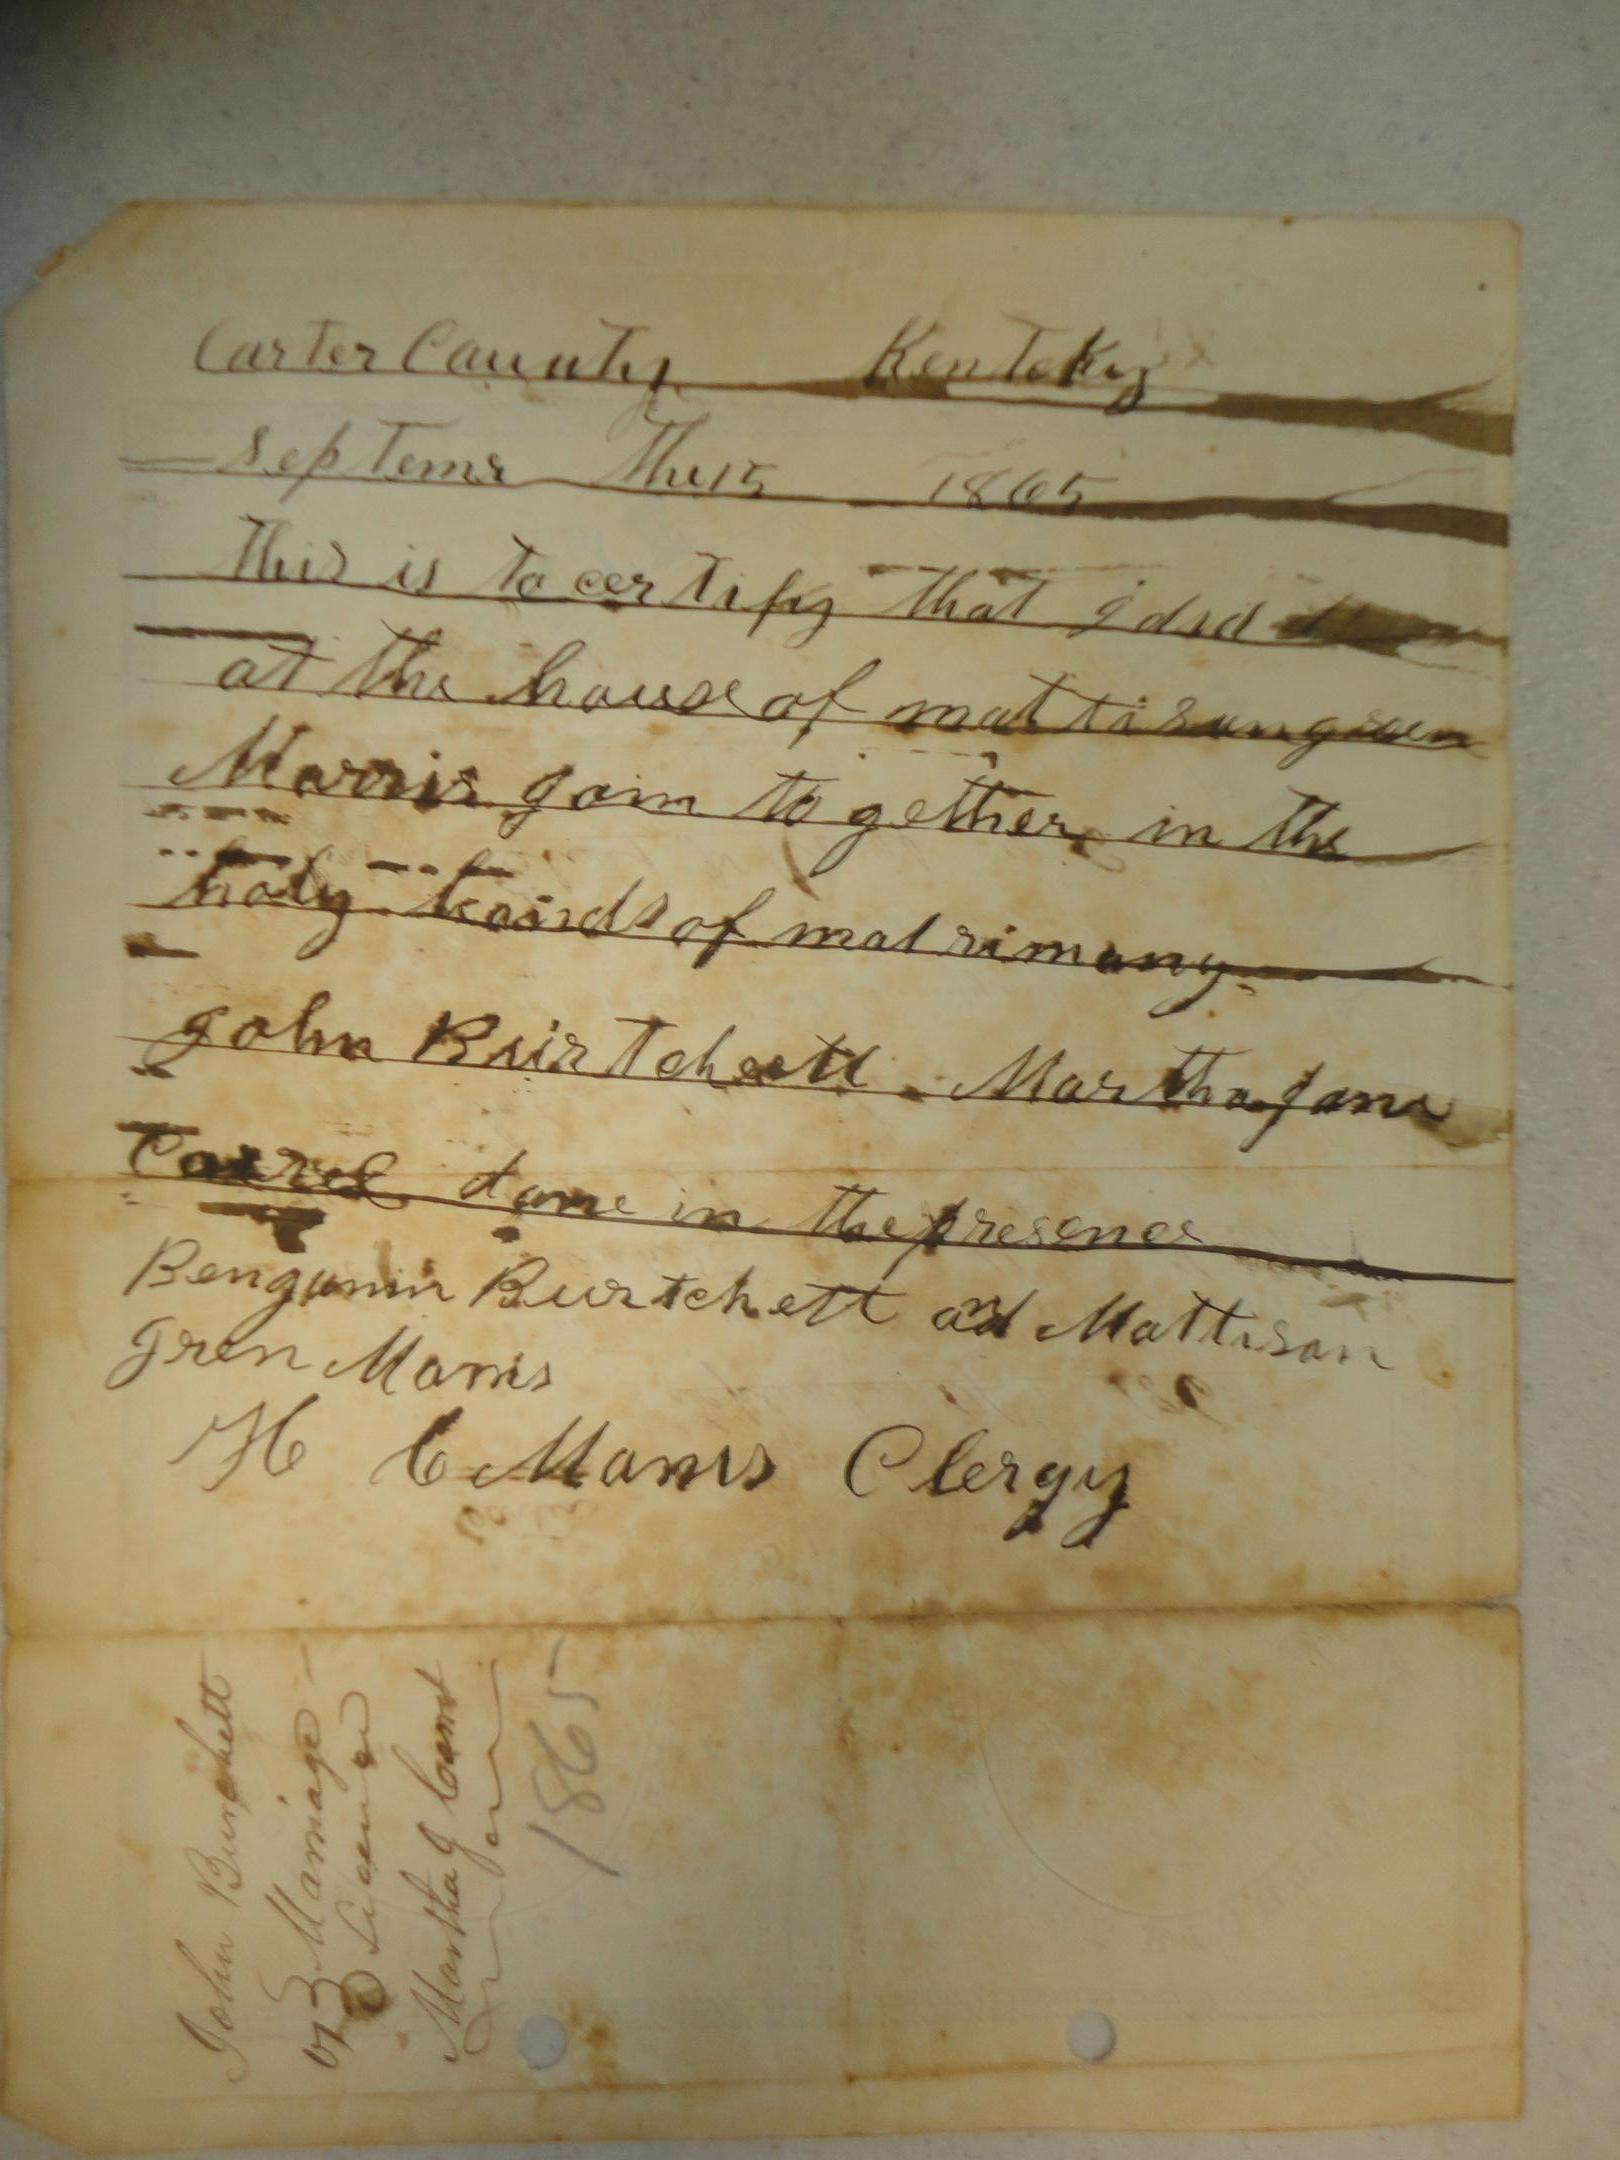 Carter County Kentcky
septemr the 15 1865
this is to certify that I did
at the house of mattison green
Morris join to gether in the
holy bands of matrimony
John Burtchett Martha Jane
Carrel done in the presence
Bengamin Burtchett and Mattison
Gren Morris
H C Morris Clergy
John Burchett
Marriage
vs Licence
Martha J
1865